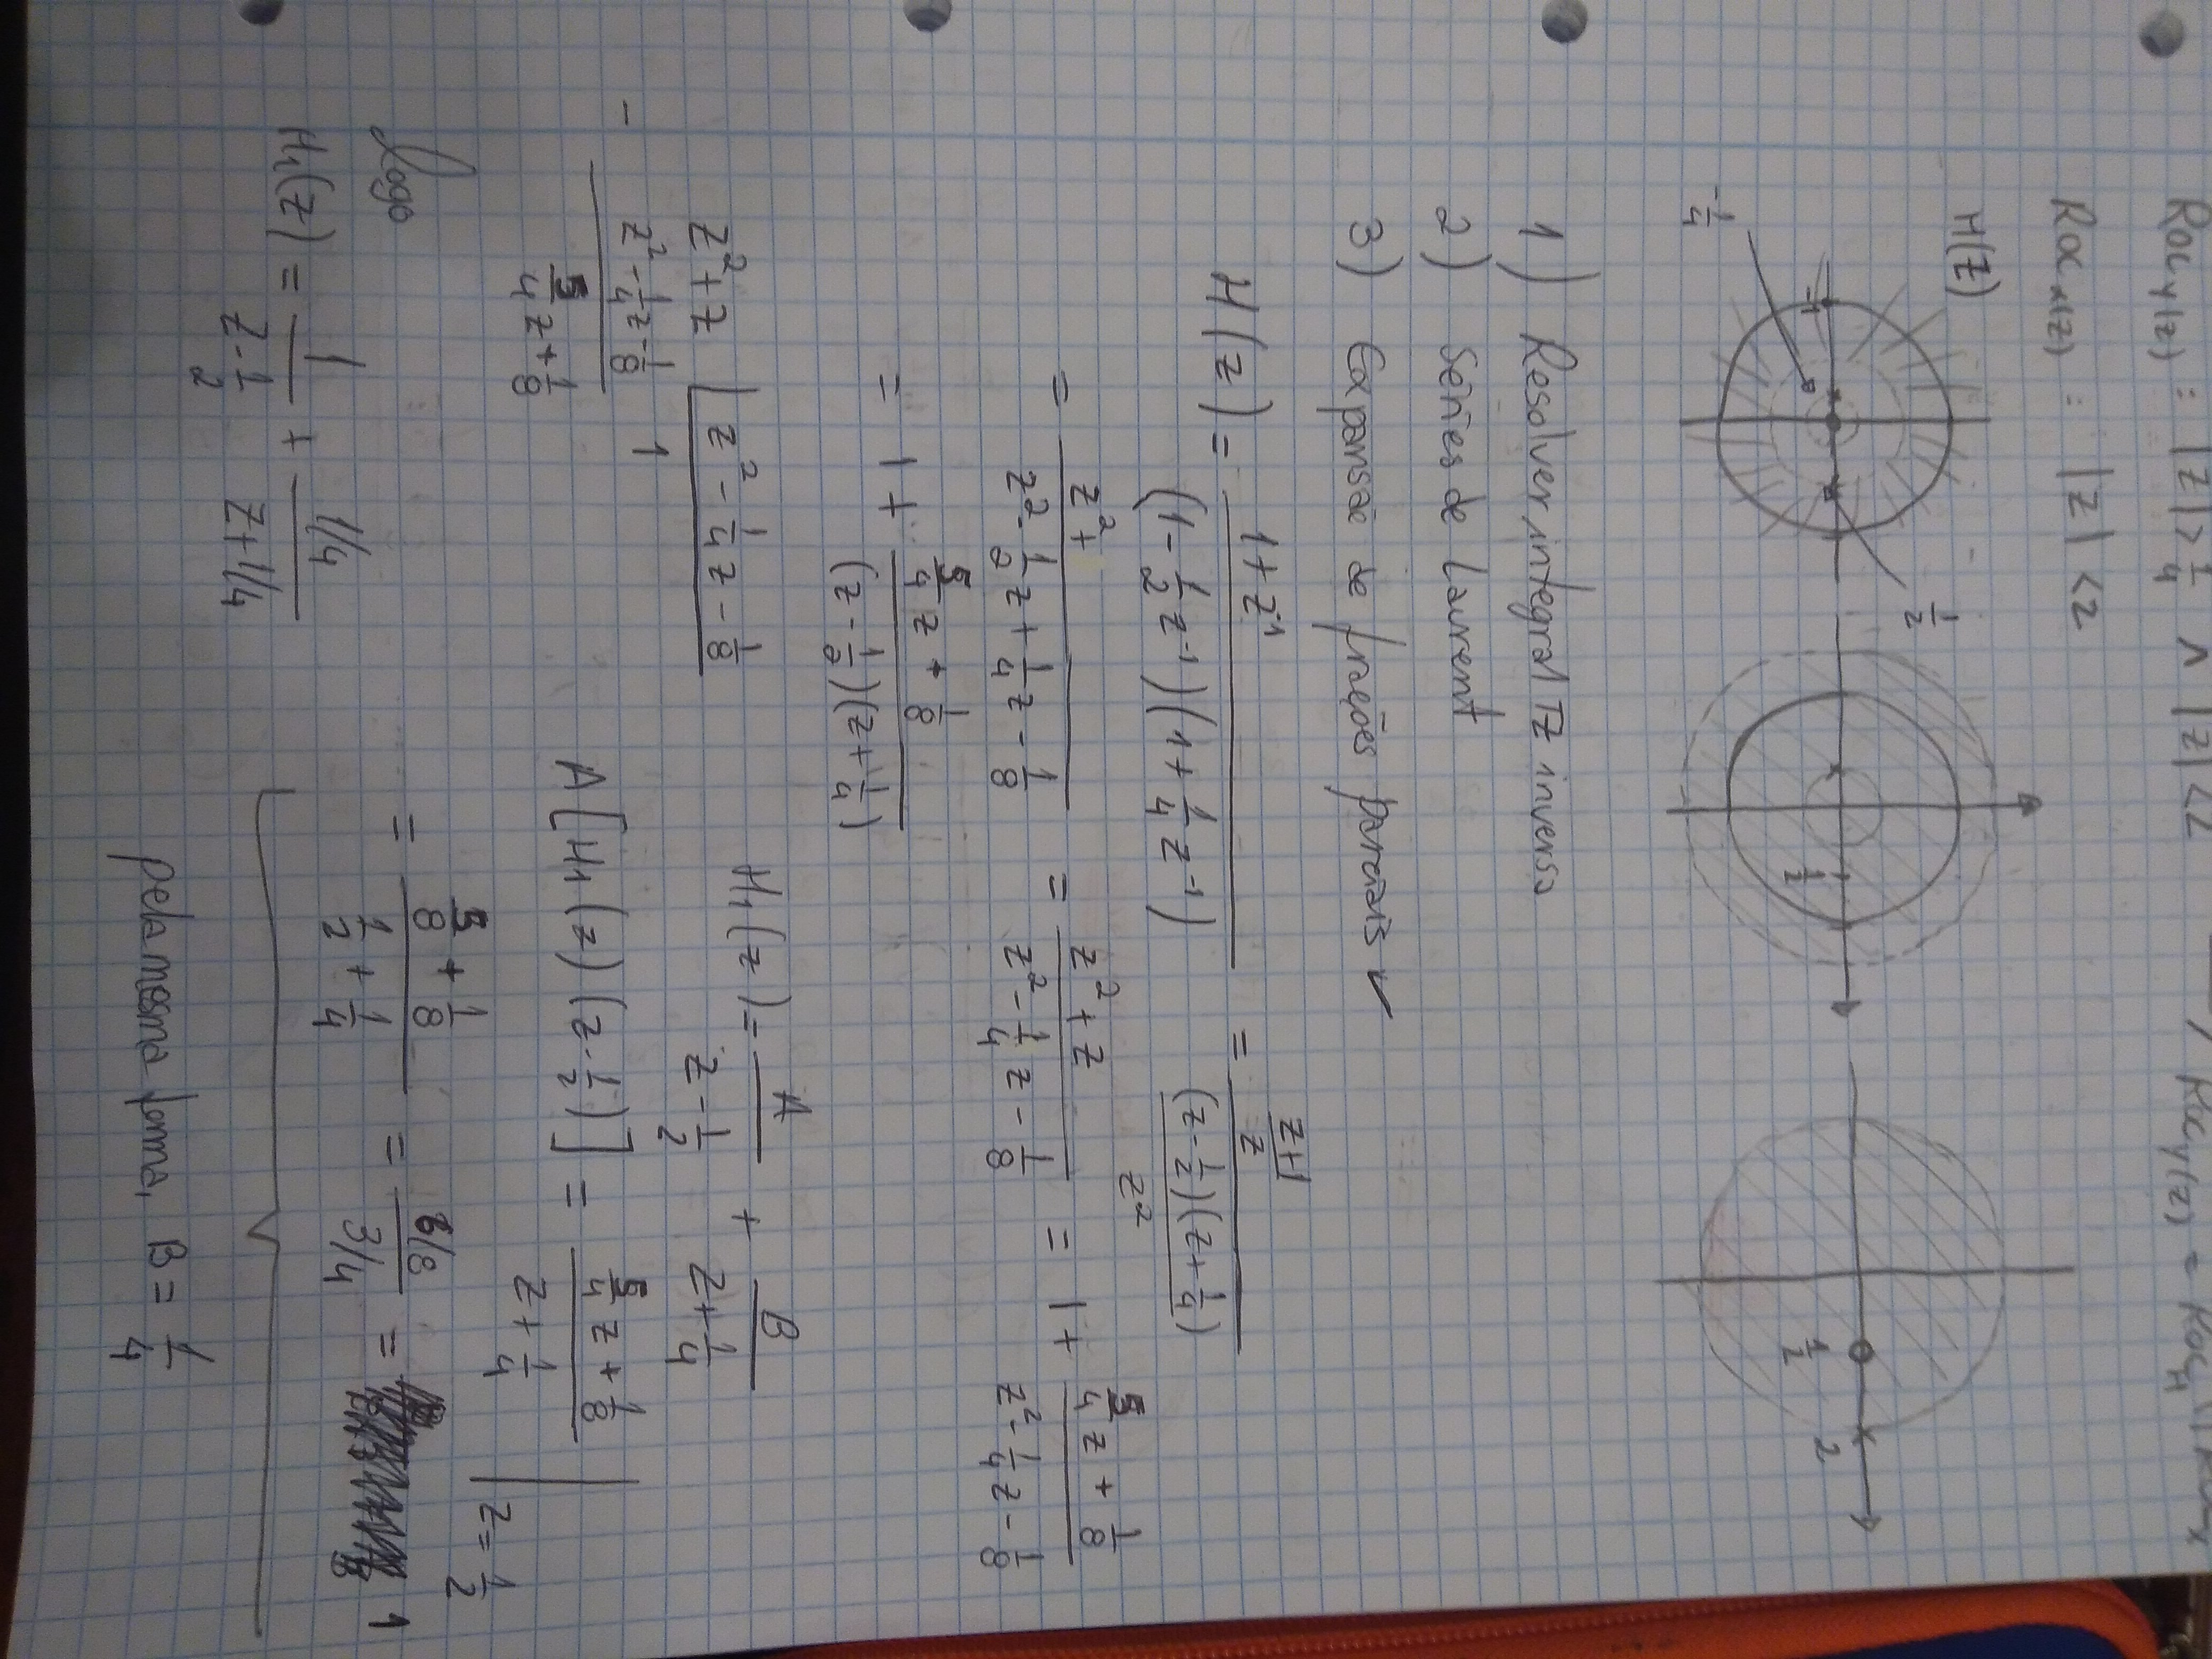 ROC Y(z) : |z| > 1/4 ∧ |z| < 2
ROC Y(z) = ROC H ∩ ROC X
ROC x(z) : |z| < 2
H(z)
1/2
-1
-1/4
1/2
1/2
2
1) Resolver integral TZ inversa
2) Séries de Laurent
3) Expansão de frações parciais ✓
H(z) = (1 + z^-1) / ((1 - 1/2 z^-1)(1 + 1/4 z^-1)) = ((z+1)/z) / ((z - 1/2)(z + 1/4) / z^2)
= (z^2 +) / (z^2 - 1/2 z + 1/4 z - 1/8) = (z^2 + z) / (z^2 - 1/4 z - 1/8) = 1 + (5/4 z + 1/8) / (z^2 - 1/4 z - 1/8)
= 1 + (5/4 z + 1/8) / ((z - 1/2)(z + 1/4))
z^2 + z | z^2 - 1/4 z - 1/8
- z^2 - 1/4 z - 1/8 1
5/4 z + 1/8
H1(z) = A / (z - 1/2) + B / (z + 1/4)
A[H1(z)(z - 1/2)] = (5/4 z + 1/8) / (z + 1/4) | z = 1/2
= (5/8 + 1/8) / (1/2 + 1/4) = (6/8) / (3/4) = 1
logo
H1(z) = 1 / (z - 1/2) + (1/4) / (z + 1/4)
pela mesma forma, B = 1/4